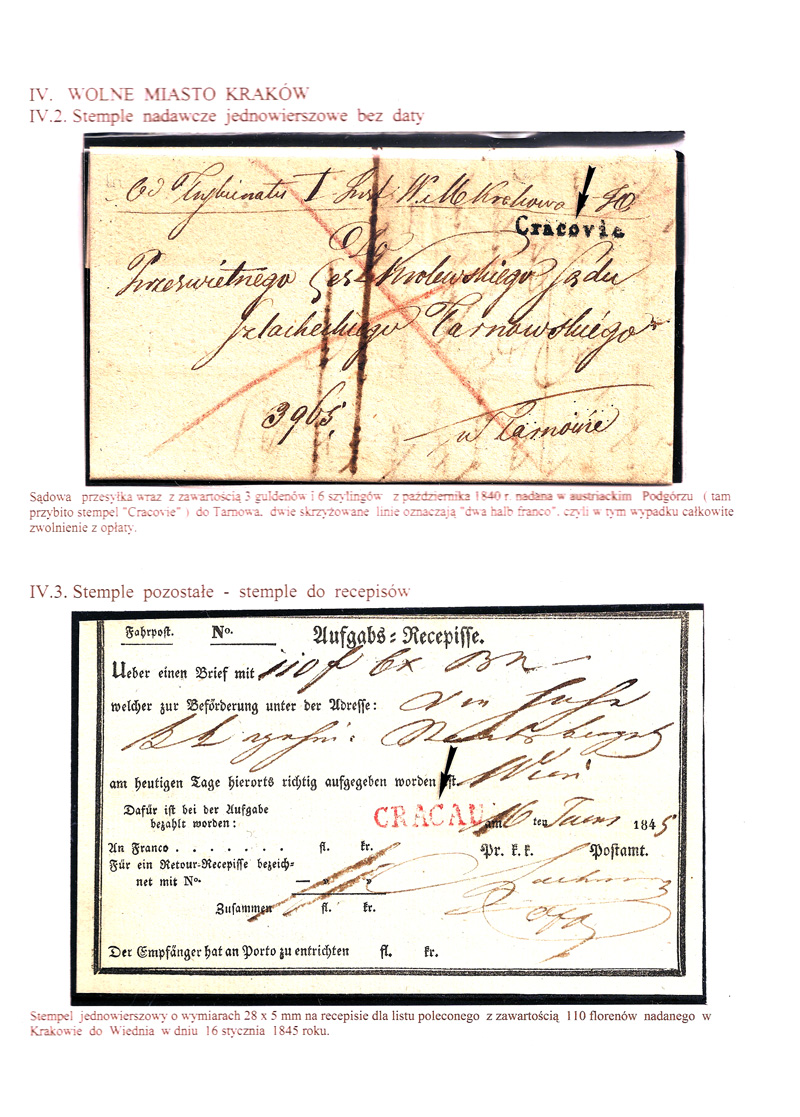 IV. WOLNE MIASTO KRAKÓW
IV.2. Stemple nadawcze jednowierszowe bez daty
Od Trybunału I Inst. W. M. Krakowa
Cracovie
Do
Prześwietnego Ces. Krolewskiego Sądu
Szlacheckiego Tarnowskiego
3965
w Tarnowie
Sądowa przesyłka wraz z zawartością 3 guldenów i 6 szylingów z października 1840 r. nadana w austriackim Podgórzu ( tam
przybito stempel "Cracovie" ) do Tarnowa, dwie skrzyżowane linie oznaczają "dwa halb franco", czyli w tym wypadku całkowite
zwolnienie z opłaty.
IV.3. Stemple pozostałe - stemple do recepisów
Fahrpost. No. Aufgabs=Recepisse.
Ueber einen Brief mit 110 f
welcher zur Beförderung unter der Adresse:
am heutigen Tage hierorts richtig aufgegeben worden ist. Wien
Dafür ist bei der Aufgabe
bezahlt worden:
CRACAU am 16 ten 1845
An Franco . . . . . . . fl. kr. Pr. k. k. Postamt.
Für ein Retour-Recepisse bezeich-
net mit No. — " "
Zusammen fl. kr.
Der Empfänger hat an Porto zu entrichten fl. kr.
Stempel jednowierszowy o wymiarach 28 x 5 mm na recepisie dla listu poleconego z zawartością 110 florenów nadanego w
Krakowie do Wiednia w dniu 16 stycznia 1845 roku.